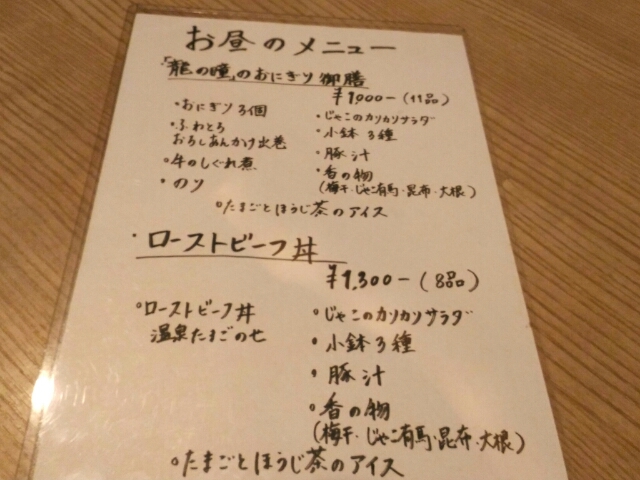 お昼のメニュー
「龍の瞳」のおにぎり御膳
¥1,900-(11品)
・おにぎり3個
・じゃこのカリカリサラダ
・ふわとろ
おろしあんかけ出巻
・小鉢3種
・豚汁
・牛のしぐれ煮
・香の物
(梅干・じゃこ有馬・昆布・大根)
・のり
・たまごとほうじ茶のアイス
・ローストビーフ丼
¥1,300-(8品)
・ローストビーフ丼
温泉たまごのせ
・じゃこのカリカリサラダ
・小鉢3種
・豚汁
・香の物
(梅干・じゃこ有馬・昆布・大根)
・たまごとほうじ茶のアイス